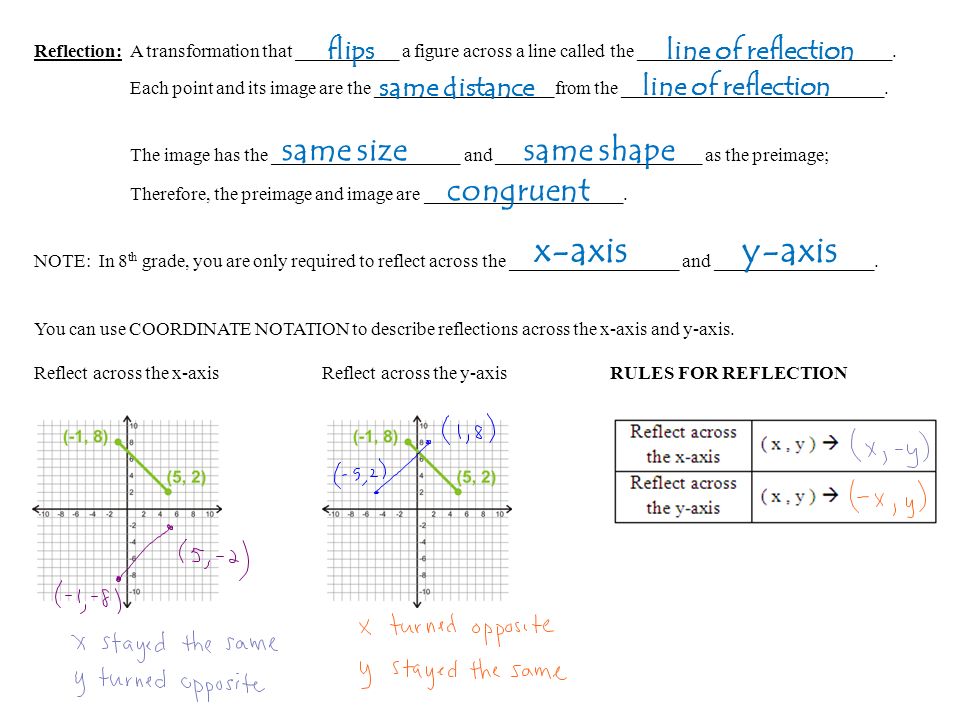 Reflection: A transformation that flips a figure across a line called the line of reflection.
Each point and its image are the same distance from the line of reflection.
The image has the same size and same shape as the preimage;
Therefore, the preimage and image are congruent.
NOTE: In 8th grade, you are only required to reflect across the x-axis and y-axis.
You can use COORDINATE NOTATION to describe reflections across the x-axis and y-axis.
Reflect across the x-axis Reflect across the y-axis RULES FOR REFLECTION
(-1, 8)
(5, 2)
10
8
6
4
2
-10 -8 -6 -4 -2 2 4 6 8 10
-2
-4
-6
-8
-10
(5, -2)
(-1, -8)
x stayed the same
y turned opposite
(-1, 8)
(1, 8)
(-5, 2)
(5, 2)
10
8
6
4
2
-10 -8 -6 -4 -2 2 4 6 8 10
-2
-4
-6
-8
-10
x turned opposite
y stayed the same
Reflect across
the x-axis
( x , y ) → (x, -y)
Reflect across
the y-axis
( x , y ) → (-x, y)